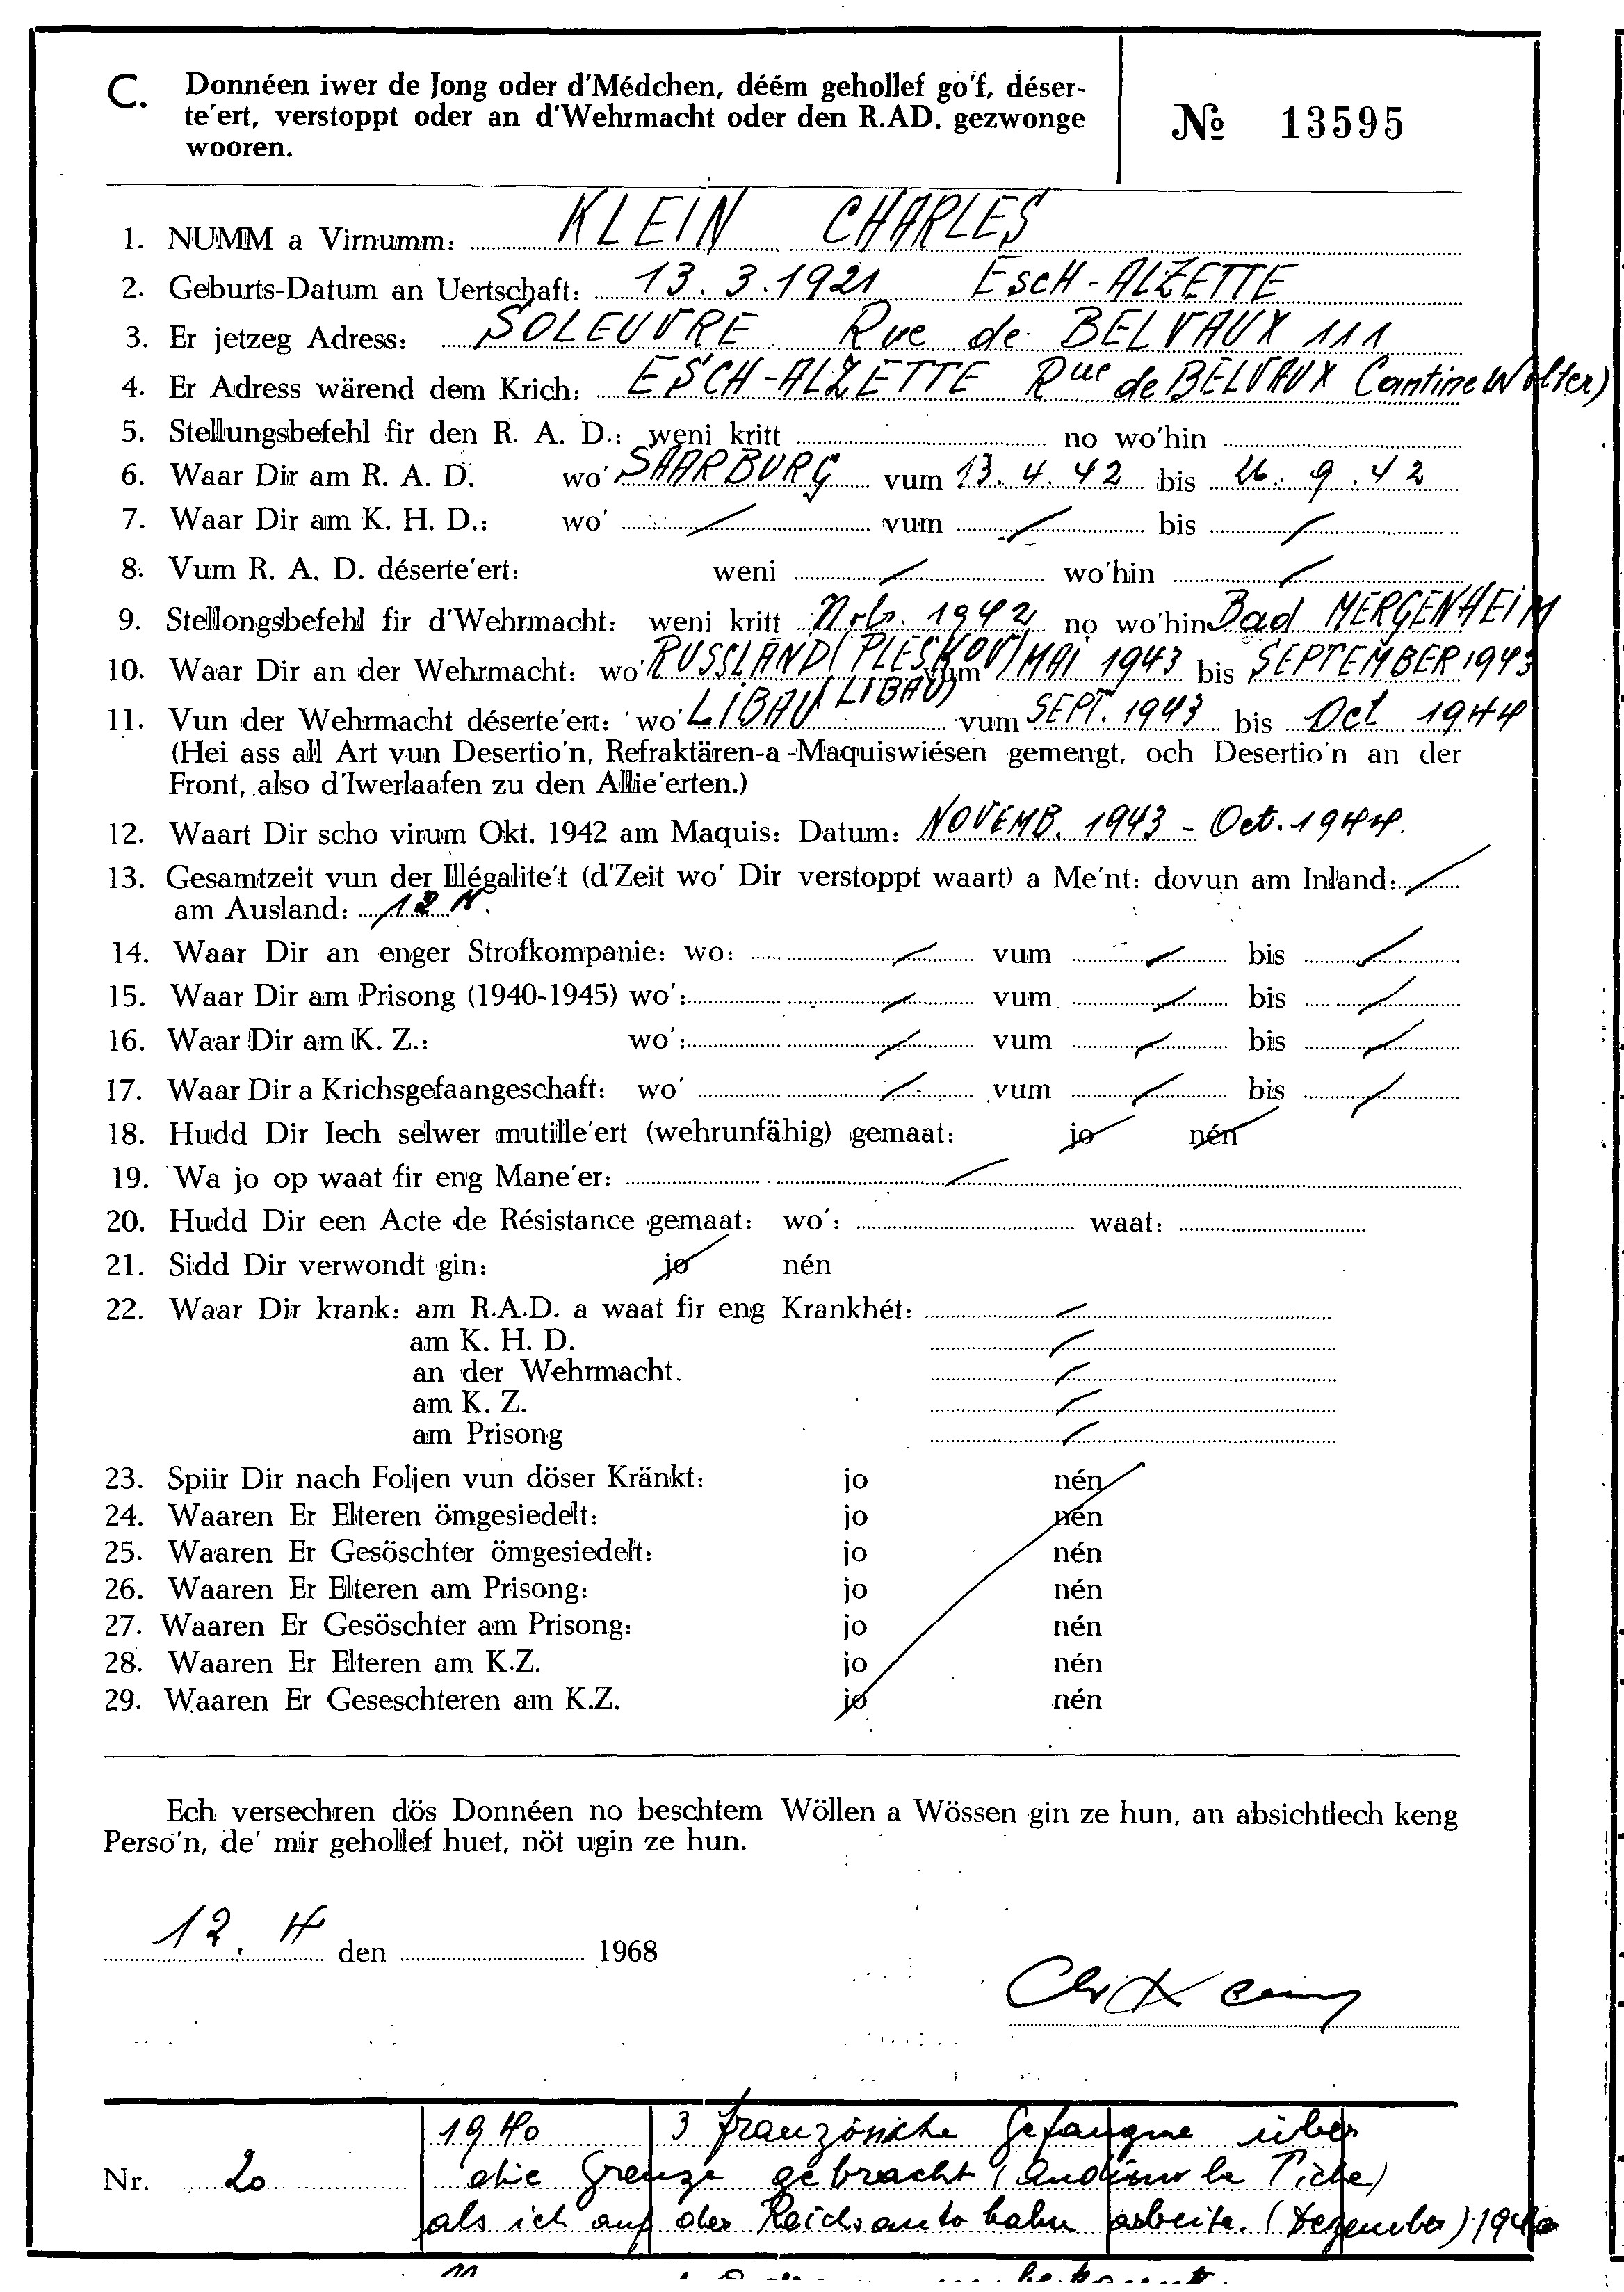 C. Donnéen iwer de Jong oder d'Médchen, déém gehollef go'f, déser-
te'ert, verstoppt oder an d'Wehrmacht oder den R.AD. gezwonge
wooren.
№ 13595
1. NUMM a Virnumm: KLEIN CHARLES
2. Geburts-Datum an Uertschaft: 13.3.1921 EscH-ALZETTE
3. Er jetzeg Adress: SOLEUVRE Rue de BELVAUX 111
4. Er Adress wärend dem Krich: ESCH-ALZETTE Rue de BELVAUX (Cantine Wolter)
5. Stellungsbefehl fir den R. A. D.: weni kritt no wo'hin
6. Waar Dir am R. A. D. wo' SAARBURG vum 13.4.42 bis 26.9.42
7. Waar Dir am K. H. D.: wo' / vum / bis /
8. Vum R. A. D. déserte'ert: weni / wo'hin /
9. Stellongsbefehl fir d'Wehrmacht: weni kritt 1942 no wo'hin Bad MERGENHEIM
10. Waar Dir an der Wehrmacht: wo' RUSSLAND (PLESKOV) vum MAI 1943 bis SEPTEMBER 1943
11. Vun der Wehrmacht déserte'ert: wo' LIBAU (LIBAU) vum SEPT. 1943 bis Oct 1944
(Hei ass all Art vun Desertio'n, Refraktären-a-Maquiswiésen gemengt, och Desertio'n an der
Front, also d'Iwerlaafen zu den Allie'erten.)
12. Waart Dir scho virum Okt. 1942 am Maquis: Datum: NOVEMB. 1943 - Oct. 1944.
13. Gesamtzeit vun der Illégalite't (d'Zeit wo' Dir verstoppt waart) a Me'nt: dovun am Inland: /
am Ausland: 12 M.
14. Waar Dir an enger Strofkompanie: wo: / vum / bis /
15. Waar Dir am Prisong (1940-1945) wo': / vum / bis /
16. Waar Dir am K. Z.: wo': / vum / bis /
17. Waar Dir a Krichsgefaangeschaft: wo' / vum / bis /
18. Hudd Dir Iech selwer mutille'ert (wehrunfähig) gemaat: jo nén
19. Wa jo op waat fir eng Mane'er: /
20. Hudd Dir een Acte de Résistance gemaat: wo': waat:
21. Sidd Dir verwondt gin: jo nén
22. Waar Dir krank: am R.A.D. a waat fir eng Krankhét: /
am K. H. D. /
an der Wehrmacht. /
am K. Z. /
am Prisong /
23. Spiir Dir nach Foljen vun döser Kränkt: jo nén
24. Waaren Er Elteren ömgesiedelt: jo nén
25. Waaren Er Gesöschter ömgesiedelt: jo nén
26. Waaren Er Elteren am Prisong: jo nén
27. Waaren Er Gesöschter am Prisong: jo nén
28. Waaren Er Elteren am K.Z. jo nén
29. Waaren Er Geseschteren am K.Z. jo nén
Ech versechren dös Donnéen no beschtem Wöllen a Wössen gin ze hun, an absichtlech keng
Perso'n, de' mir gehollef huet, nöt ugin ze hun.
12. 4 den 1968
1940 3 französische Gefangne über
Nr. 20 die Grenze gebracht (Audun le Tiche)
als ich auf der Reichsautobahn arbeite. (Dezember) 1940